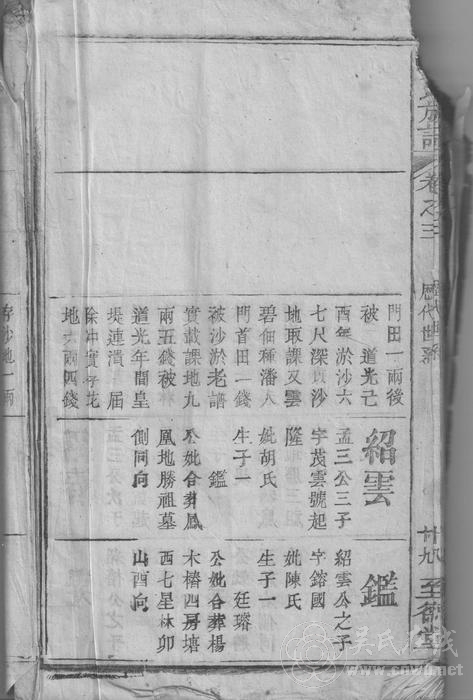 族譜
卷之三
歷代世系
廿九
至德堂
門田一兩後
被 道光己
酉年淤沙六
七尺深 沙
地取課又雲
碧佃種潘人
門首田一錢
被沙淤老譜
實載課地九
兩五錢被
道光年間皇
堤連潰 屆
除冲實存花
地六兩四錢
紹雲
孟三公三子
字茂雲號起
隆
妣胡氏
生子一
鑑
公妣合葬鳳
凰地勝祖墓
側同向
鑑
紹雲公之子
字鎔國
妣陳氏
生子一
廷瑢
公妣合葬楊
木樁四房塘
西七星林卯
山酉向
存沙地一兩
吴氏在线